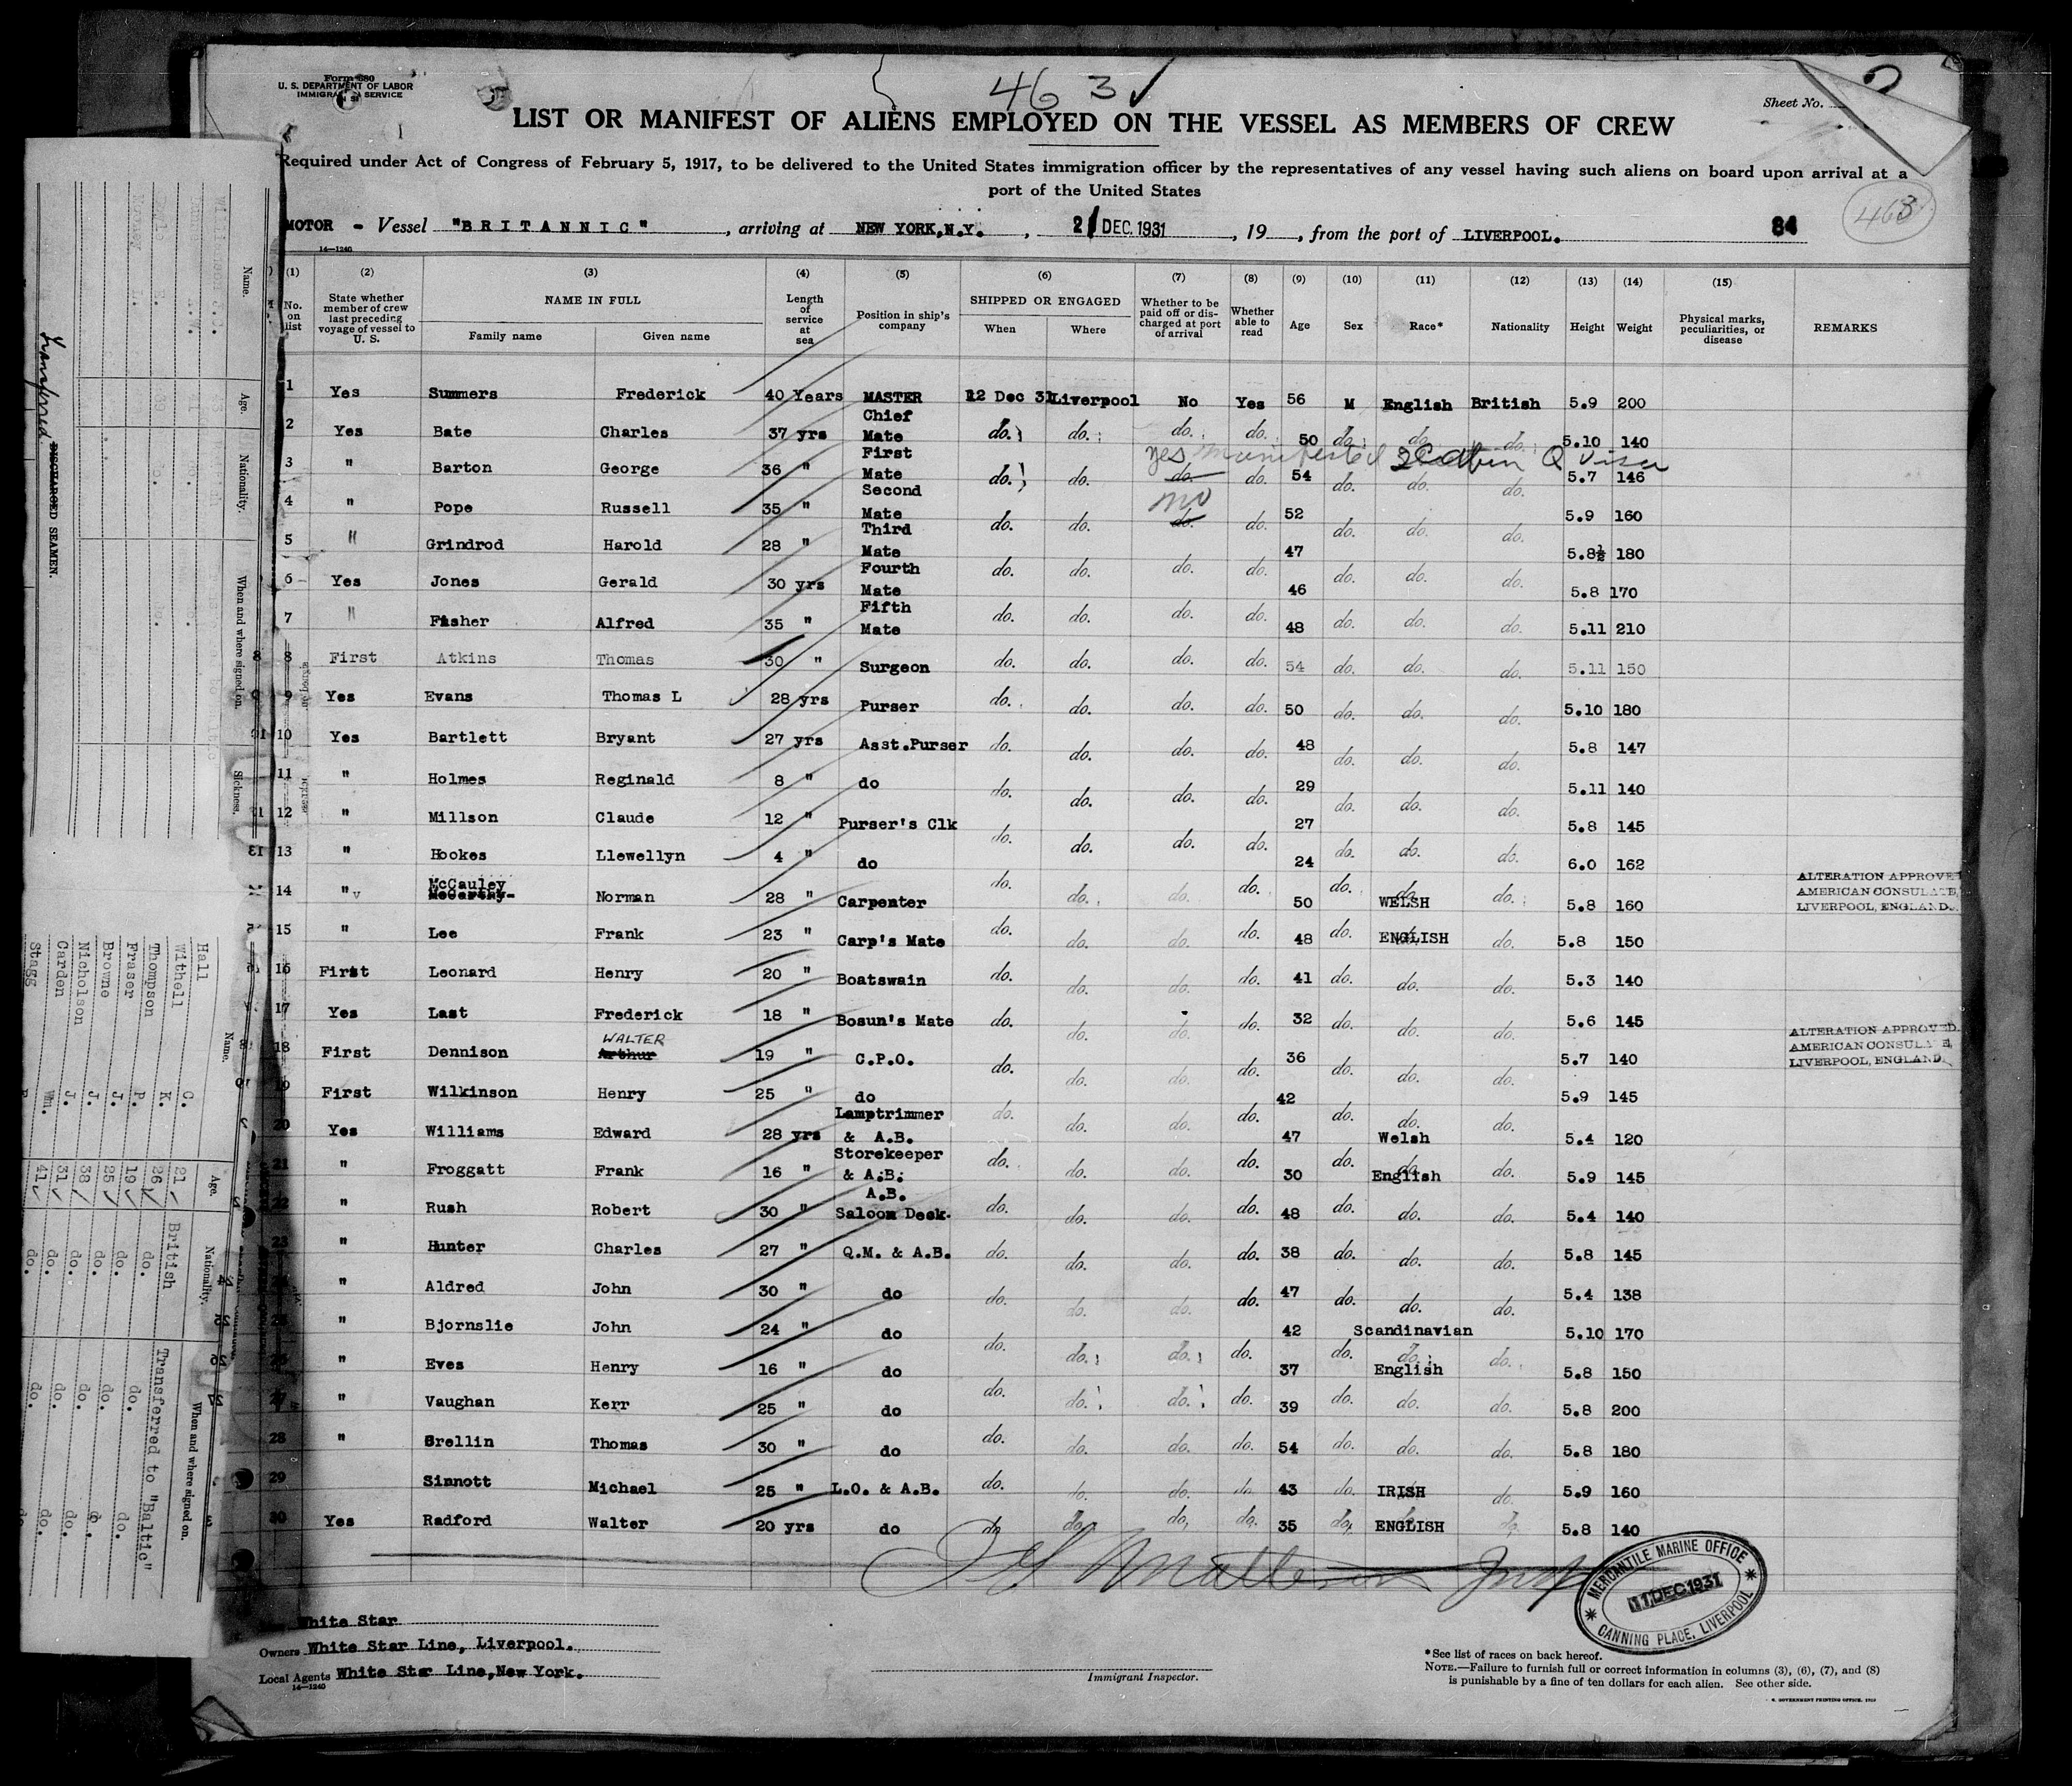 Form 680
U. S. DEPARTMENT OF LABOR
IMMIGRATION SERVICE
463 ✓
Sheet No.
LIST OR MANIFEST OF ALIENS EMPLOYED ON THE VESSEL AS MEMBERS OF CREW
Required under Act of Congress of February 5, 1917, to be delivered to the United States immigration officer by the representatives of any vessel having such aliens on board upon arrival at a
port of the United States
MOTOR - Vessel "BRITANNIC", arriving at NEW YORK,N.Y., 21 DEC.1931, 19, from the port of LIVERPOOL. 84 463
14—1240
(1) (2) (3) (4) (5) (6) (7) (8) (9) (10) (11) (12) (13) (14) (15)
No. on list State whether member of crew last preceding voyage of vessel to U. S. NAME IN FULL Family name Given name Length of service at sea Position in ship's company SHIPPED OR ENGAGED When Where Whether to be paid off or discharged at port of arrival Whether able to read Age Sex Race* Nationality Height Weight Physical marks, peculiarities, or disease REMARKS
1 Yes Summers Frederick 40 Years MASTER 12 Dec 31 Liverpool No Yes 56 M English British 5.9 200
2 Yes Bate Charles 37 yrs Chief Mate do. do. do. do. 50 do. do. do. 5.10 140
yes manifested
3 " Barton George 36 " First Mate do. do. do. do. 54 do. do. do. 5.7 146
no
4 " Pope Russell 35 " Second Mate do. do. do. do. 52 do. do. do. 5.9 160
5 " Grindrod Harold 28 " Third Mate do. do. do. do. 47 do. do. do. 5.8½ 180
6 Yes Jones Gerald 30 yrs Fourth Mate do. do. do. do. 46 do. do. do. 5.8 170
7 " Fisher Alfred 35 " Fifth Mate do. do. do. do. 48 do. do. do. 5.11 210
8 First Atkins Thomas 30 " Surgeon do. do. do. do. 54 do. do. do. 5.11 150
9 Yes Evans Thomas L 28 yrs Purser do. do. do. do. 50 do. do. do. 5.10 180
10 Yes Bartlett Bryant 27 yrs Asst.Purser do. do. do. do. 48 do. do. do. 5.8 147
11 " Holmes Reginald 8 " do do. do. do. do. 29 do. do. do. 5.11 140
12 " Millson Claude 12 " Purser's Clk do. do. do. do. 27 do. do. do. 5.8 145
13 " Hookes Llewellyn 4 " do do. do. do. do. 24 do. do. do. 6.0 162
14 " McCauley McCarthy Norman 28 " Carpenter do. do. do. do. 50 do. do. WELSH do. 5.8 160 ALTERATION APPROVED AMERICAN CONSULATE, LIVERPOOL, ENGLAND.
15 " Lee Frank 23 " Carp's Mate do. do. do. do. 48 do. ENGLISH do. 5.8 150
16 First Leonard Henry 20 " Boatswain do. do. do. do. 41 do. do. do. 5.3 140
17 Yes Last Frederick 18 " Bosun's Mate do. do. do. do. 32 do. do. do. 5.6 145
18 First Dennison WALTER Arthur 19 " C.P.O. do. do. do. do. 36 do. do. do. 5.7 140 ALTERATION APPROVED. AMERICAN CONSULATE, LIVERPOOL, ENGLAND.
19 First Wilkinson Henry 25 " do do. do. do. do. 42 do. do. do. 5.9 145
20 Yes Williams Edward 28 yrs Lamptrimmer & A.B. do. do. do. do. 47 do. Welsh do. 5.4 120
21 " Froggatt Frank 16 " Storekeeper & A.B. do. do. do. do. 30 do. English do. 5.9 145
22 " Rush Robert 30 " A.B. Saloom Deck. do. do. do. do. 48 do. do. do. 5.4 140
23 " Hunter Charles 27 " Q.M. & A.B. do. do. do. do. 38 do. do. do. 5.8 145
24 " Aldred John 30 " do do. do. do. do. 47 do. do. do. 5.4 138
25 " Bjornslie John 24 " do do. do. do. do. 42 do. Scandinavian do. 5.10 170
26 " Eves Henry 16 " do do. do. do. do. 37 do. English do. 5.8 150
27 " Vaughan Kerr 25 " do do. do. do. do. 39 do. do. do. 5.8 200
28 " Brellin Thomas 30 " do do. do. do. do. 54 do. do. do. 5.8 180
29 Sinnott Michael 25 " L.O. & A.B. do. do. do. do. 43 do. IRISH do. 5.9 160
30 Yes Radford Walter 20 yrs do do. do. do. do. 35 do. ENGLISH do. 5.8 140
MERCANTILE MARINE OFFICE
11 DEC 1931
CANNING PLACE, LIVERPOOL
White Star
Owners White Star Line, Liverpool.
Local Agents White Star Line,New York.
14—1240
Immigrant Inspector.
*See list of races on back hereof.
NOTE.—Failure to furnish full or correct information in columns (3), (6), (7), and (8)
is punishable by a fine of ten dollars for each alien. See other side.
GOVERNMENT PRINTING OFFICE
Name. Age. Nationality. When and where signed on. Sickness.
Transferred
DISCHARGED SEAMEN.
Name. Age. Nationality. When and where signed on.
Hall C. 21 British Transferred to "Baltic"
Withell K. 26 do. do. do.
Thompson P. 19 do. do. do.
Fraser J. 25 do. do.
Browne J. 38 do. do. do.
Nicholson J. 31 do. do. do.
Carden Wm. 41 do. do. do.
Stagg